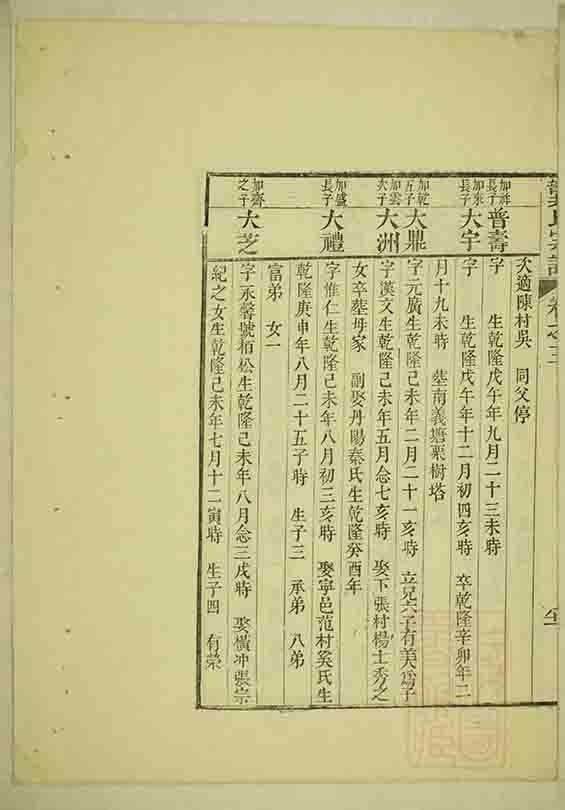 氏宗譜 卷之三
次適陳村吳 同父停
加祥長子 普壽 字 生乾隆戊午年九月二十三未時
加東長子 大宇 字 生乾隆戊午年十二月初四亥時 卒乾隆辛卯年二
月十九未時 塟南義塘栗樹塔
加乾五子 大鼎 字元廣生乾隆己未年二月二十一亥時 立兄六子有美爲子
加雲次子 大洲 字漢文生乾隆己未年五月念七亥時 娶下張村楊士秀之
女卒塟母家 副娶丹陽秦氏生乾隆癸酉年
加盛長子 大禮 字惟仁生乾隆己未年八月初三亥時 娶寧邑范村奚氏生
乾隆庚申年八月二十五子時 生子三 承弟 八弟
富弟 女一
加齊之子 大芝 字永馨號栢松生乾隆己未年八月念三戌時 娶橫冲張宗
紀之女生乾隆己未年七月十二寅時 生子四 有榮